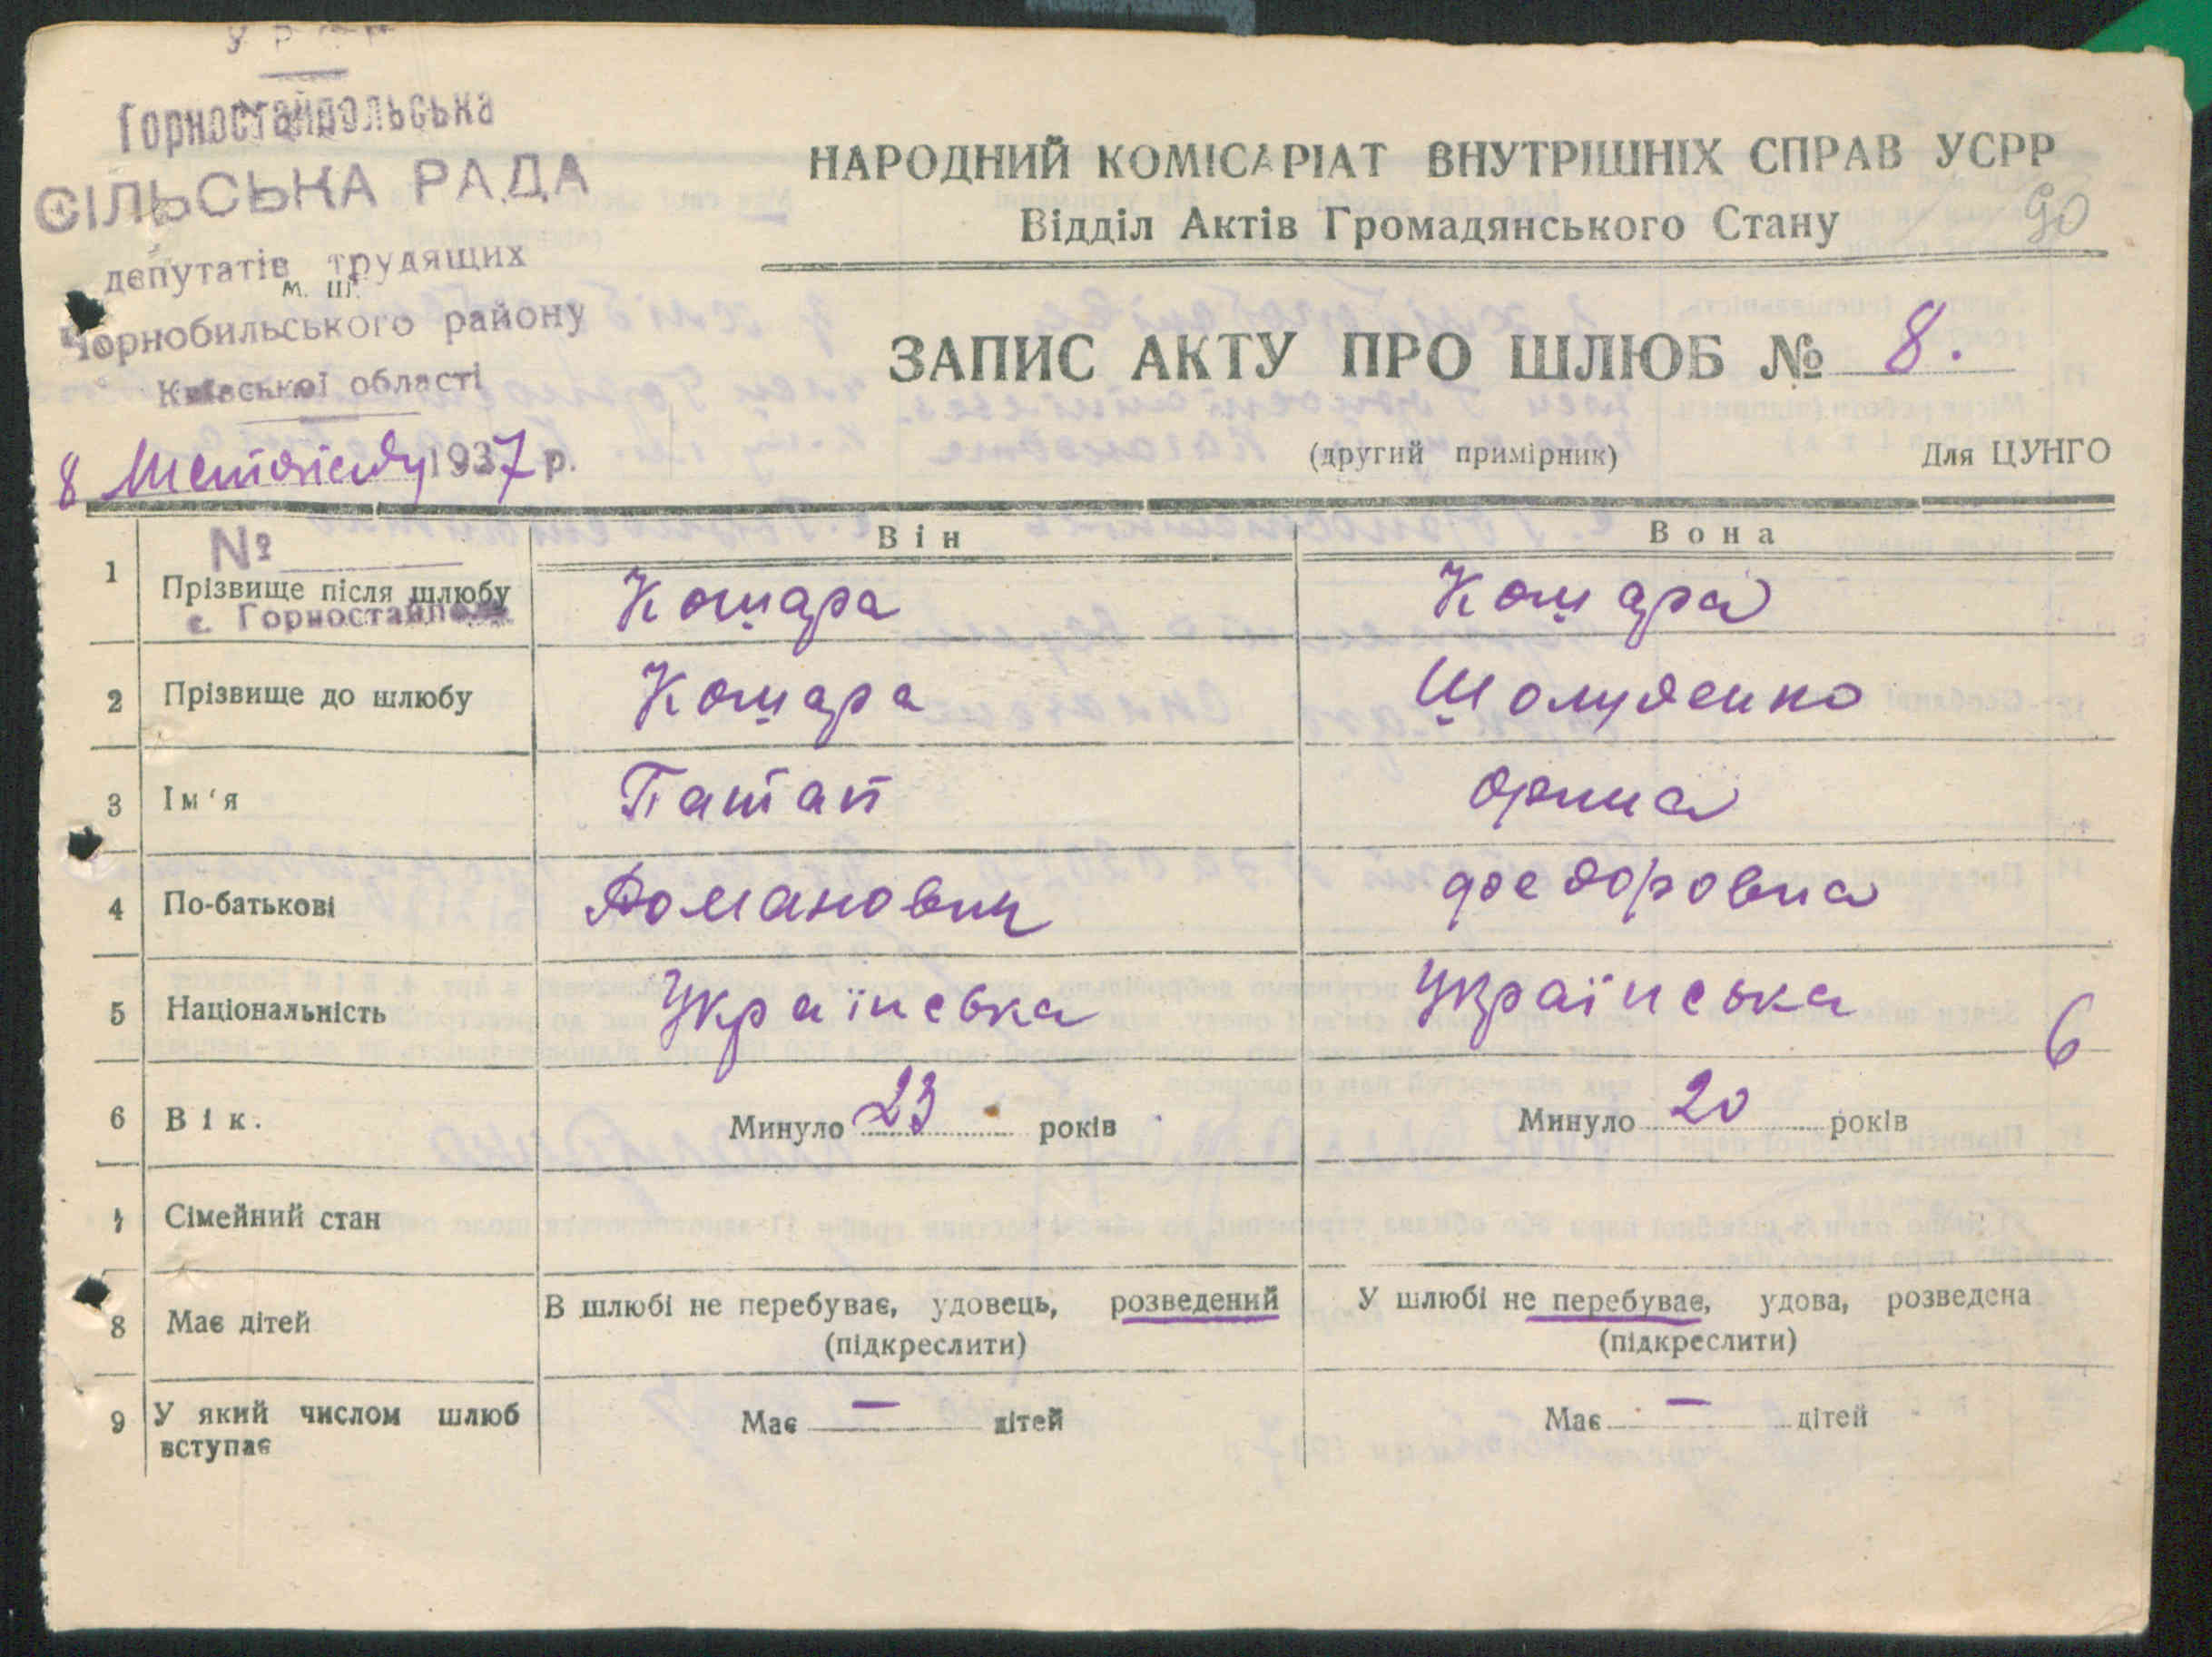 УРСР
Горностайпольська
СІЛЬСЬКА РАДА
депутатів трудящих
м. ш.
Чорнобильського району
Київської області
8 1937 р.
№
с. Горностайполь
НАРОДНИЙ КОМІСАРІАТ ВНУТРІШНІХ СПРАВ УСРР
Відділ Актів Громадянського Стану
90
ЗАПИС АКТУ ПРО ШЛЮБ № 8.
(другий примірник) Для ЦУНГО
Він Вона
1 Прізвище після шлюбу Кошара Кошара
2 Прізвище до шлюбу Кошара Шолуденко
3 Ім'я Патап Орина
4 По-батькові Романович Федоровна
5 Національність Українська Українська
6
6 Вік. Минуло 23 років Минуло 20 років
7 Сімейний стан
8 Має дітей В шлюбі не перебуває, удовець, розведений У шлюбі не перебуває, удова, розведена
(підкреслити) (підкреслити)
9 У який числом шлюб Має — дітей Має — дітей
вступає